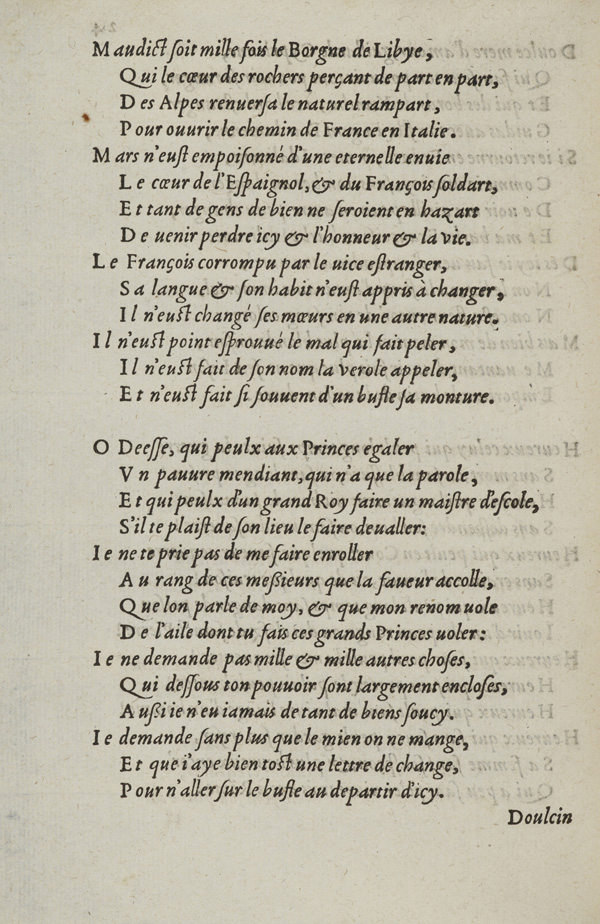 Maudict ſoit mille fois le Borgne de Libye,
Qui le cœur des rochers perçant de part en part,
Des Alpes renuerſa le naturel rampart,
Pour ouurir le chemin de France en Italie.
Mars n'euſt empoiſonné d'une eternelle enuie
Le cœur de l'Eſpaignol, & du François ſoldart,
Et tant de gens de bien ne ſeroient en hazart
De uenir perdre icy & l'honneur & la vie.
Le François corrompu par le uice eſtranger,
Sa langue & ſon habit n'euſt appris à changer,
Il n'euſt changé ſes mœurs en une autre nature.
Il n'euſt point eſprouué le mal qui fait peler,
Il n'euſt fait de ſon nom la verole appeler,
Et n'euſt fait ſi ſouuent d'un bufle ſa monture.
O Deeſſe, qui peulx aux Princes egaler
Vn pauure mendiant, qui n'a que la parole,
Et qui peulx d'un grand Roy faire un maiſtre d'eſcole,
S'il te plaiſt de ſon lieu le faire deualler:
Ie ne te prie pas de me faire enroller
Au rang de ces meßieurs que la faueur accolle,
Que lon parle de moy, & que mon renom uole
De l'aile dont tu fais ces grands Princes uoler:
Ie ne demande pas mille & mille autres choſes,
Qui deſſous ton pouuoir ſont largement encloſes,
Außi ie n'eu iamais de tant de biens ſoucy.
Ie demande ſans plus que le mien on ne mange,
Et que i'aye bien toſt une lettre de change,
Pour n'aller ſur le bufle au departir d'icy.
Doulcin